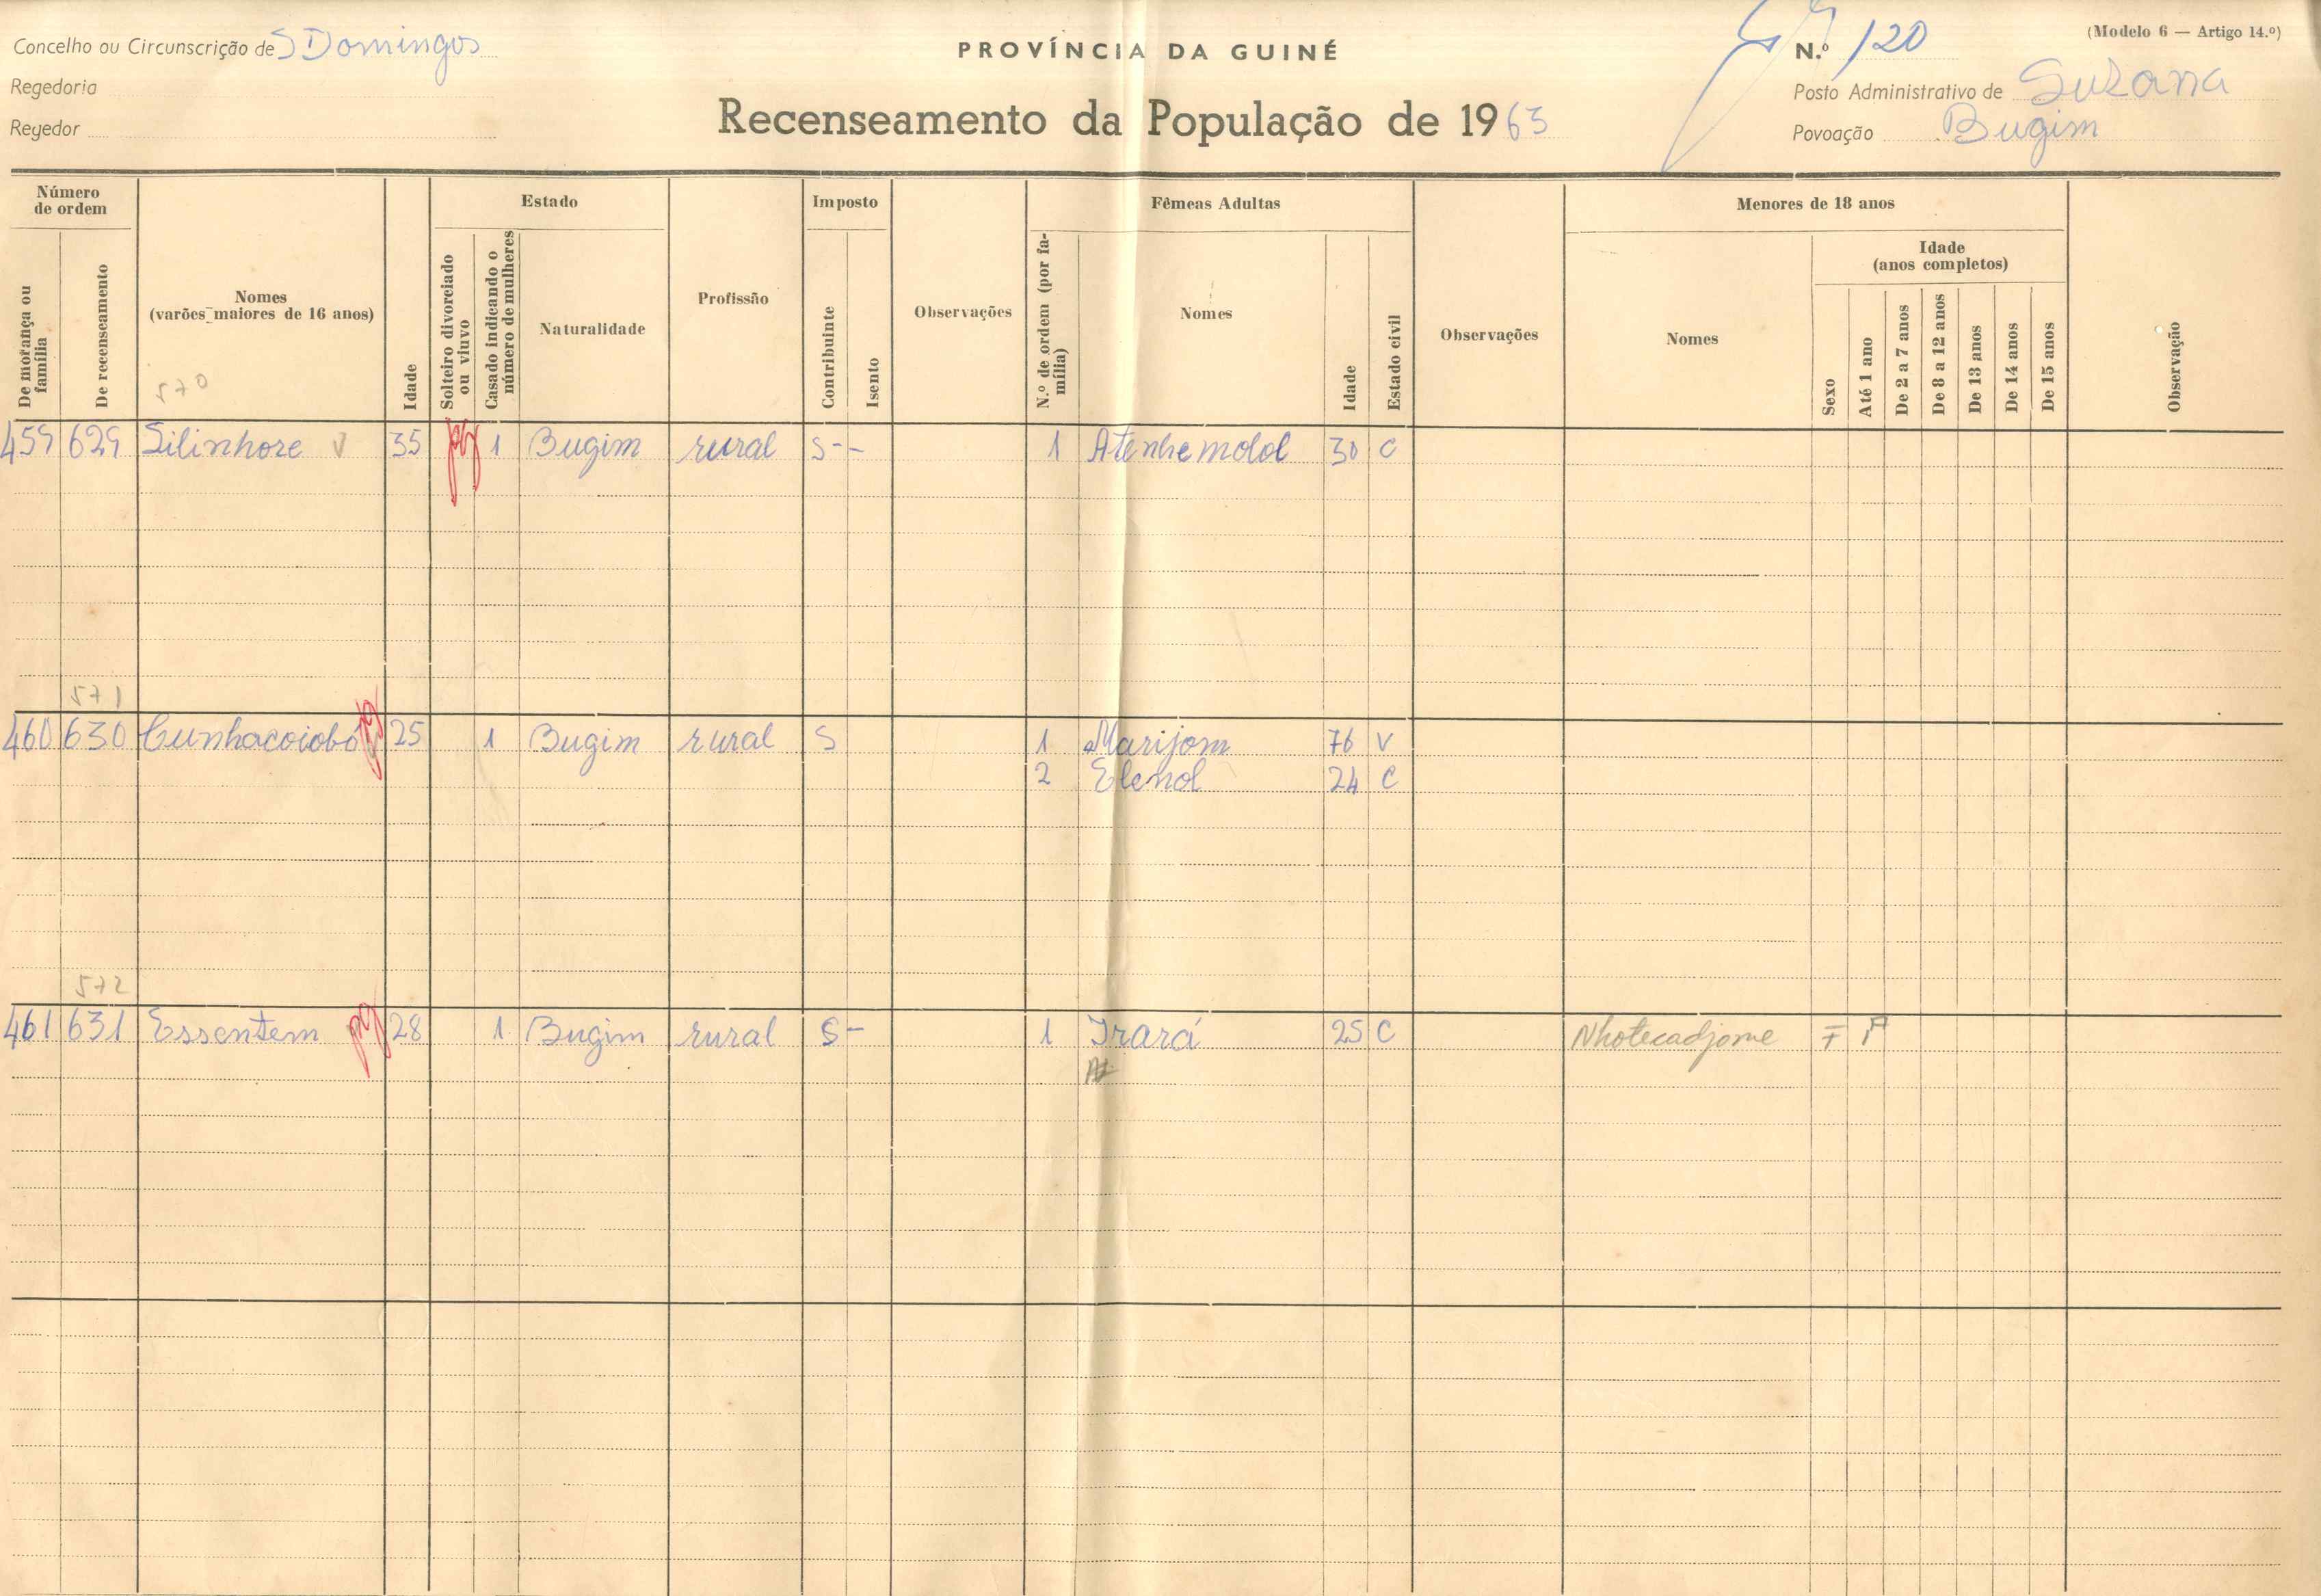 Concelho ou Circunscrição de S Domingos
PROVÍNCIA DA GUINÉ
N.º 120
(Modelo 6 — Artigo 14.º)
Regedoria
Posto Administrativo de Suzana
Regedor
Recenseamento da População de 1963
Povoação Bugim
Número de ordem
Estado
Imposto
Fêmeas Adultas
Menores de 18 anos
De morança ou família
De recenseamento
Nomes
(varões maiores de 16 anos)
570
Idade
Solteiro divorciado ou viuvo
Casado indicando o número de mulheres
Naturalidade
Profissão
Contribuinte
Isento
Observações
N.º de ordem (por família)
Nomes
Idade
Estado civil
Observações
Nomes
Sexo
Idade
(anos completos)
Até 1 ano
De 2 a 7 anos
De 8 a 12 anos
De 13 anos
De 14 anos
De 15 anos
Observação
459 629 Silinhore V 35 pg 1 Bugim rural S - - 1 Atenhemolol 30 C
571
460 630 Cunhacoiobó pg 25 1 Bugim rural S 1 Marijom 76 V
2 Elenol 24 C
572
461 631 Essentem pg 28 1 Bugim rural S - 1 Irará 25 C Nhotecadjome F